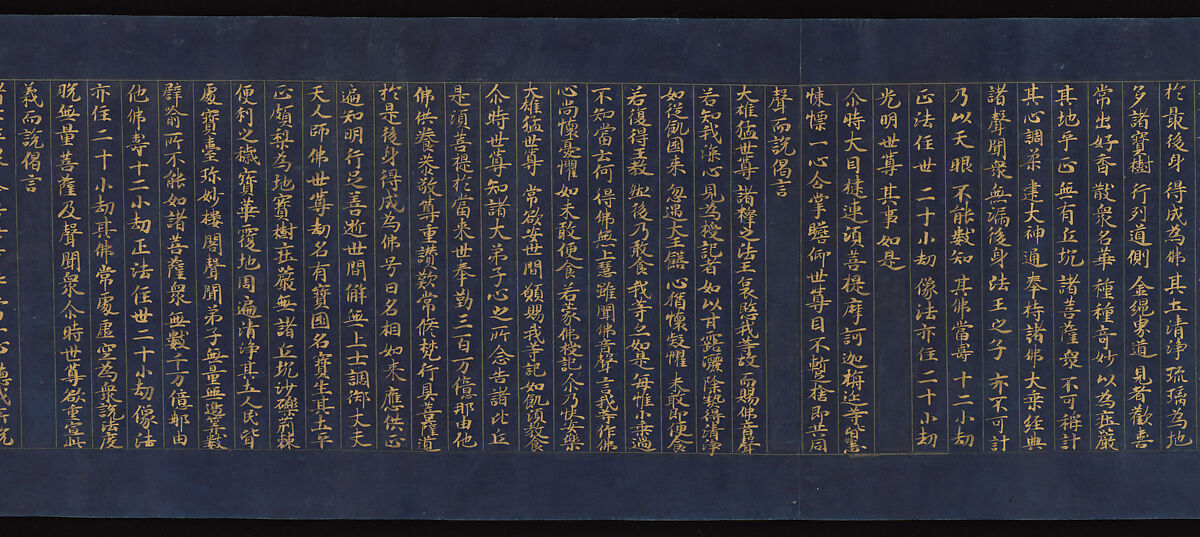 於最後身得成為佛其土清淨琉璃為地
多諸寶樹行列道側金繩界道見者歡喜
常出好香散衆名華種種奇妙以為莊嚴
其地平正無有丘坑諸菩薩衆不可稱計
其心調柔逮大神通奉持諸佛大乘經典
諸聲聞衆無漏後身法王之子亦不可計
乃以天眼不能數知其佛當壽十二小劫
正法住世二十小劫像法亦住二十小劫
光明世尊其事如是
尒時大目揵連須菩提摩訶迦栴延等皆悉
悚慄一心合掌瞻仰世尊目不暫捨即共同
聲而說偈言
大雄猛世尊 諸釋之法王 哀愍我等故 而賜佛音聲
若知我深心 見為授記者 如以甘露灑 除熱得清淨
如從飢國來 忽遇大王饍 心猶懷疑懼 未敢即便食
若復得王教 然後乃敢食 我等亦如是 每惟小乘過
不知當云何 得佛無上慧 雖聞佛音聲 言我等作佛
心尚懷憂懼 如未敢便食 若蒙佛授記 尒乃快安樂
大雄猛世尊 常欲安世間 願賜我等記 如飢須教食
尒時世尊知諸大弟子心之所念告諸比丘
是須菩提於當來世奉覲三百万億那由他
佛供養恭敬尊重讚歎常修梵行具菩薩道
於是後身得成為佛号曰名相如來應供正
遍知明行足善逝世間解無上士調御丈夫
天人師佛世尊劫名有寶國名寶生其土平
正頗梨為地寶樹莊嚴無諸丘坑沙礫荊棘
便利之穢寶華覆地周遍清淨其土人民皆
處寶臺珎妙樓閣聲聞弟子無量無邊筭數
譬喻所不能知諸菩薩衆無數千万億那由
他佛壽十二小劫正法住世二十小劫像法
亦住二十小劫其佛常處虛空為衆說法度
脫無量菩薩及聲聞衆尒時世尊欲重宣此
義而說偈言